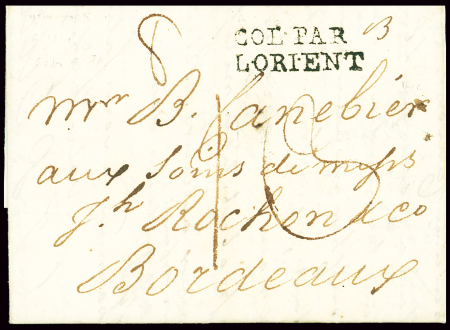 8
COL·PAR B
LORIENT
mr B. Lanebier
aux Soins de mess
J.h Rochon & co
Bordeaux